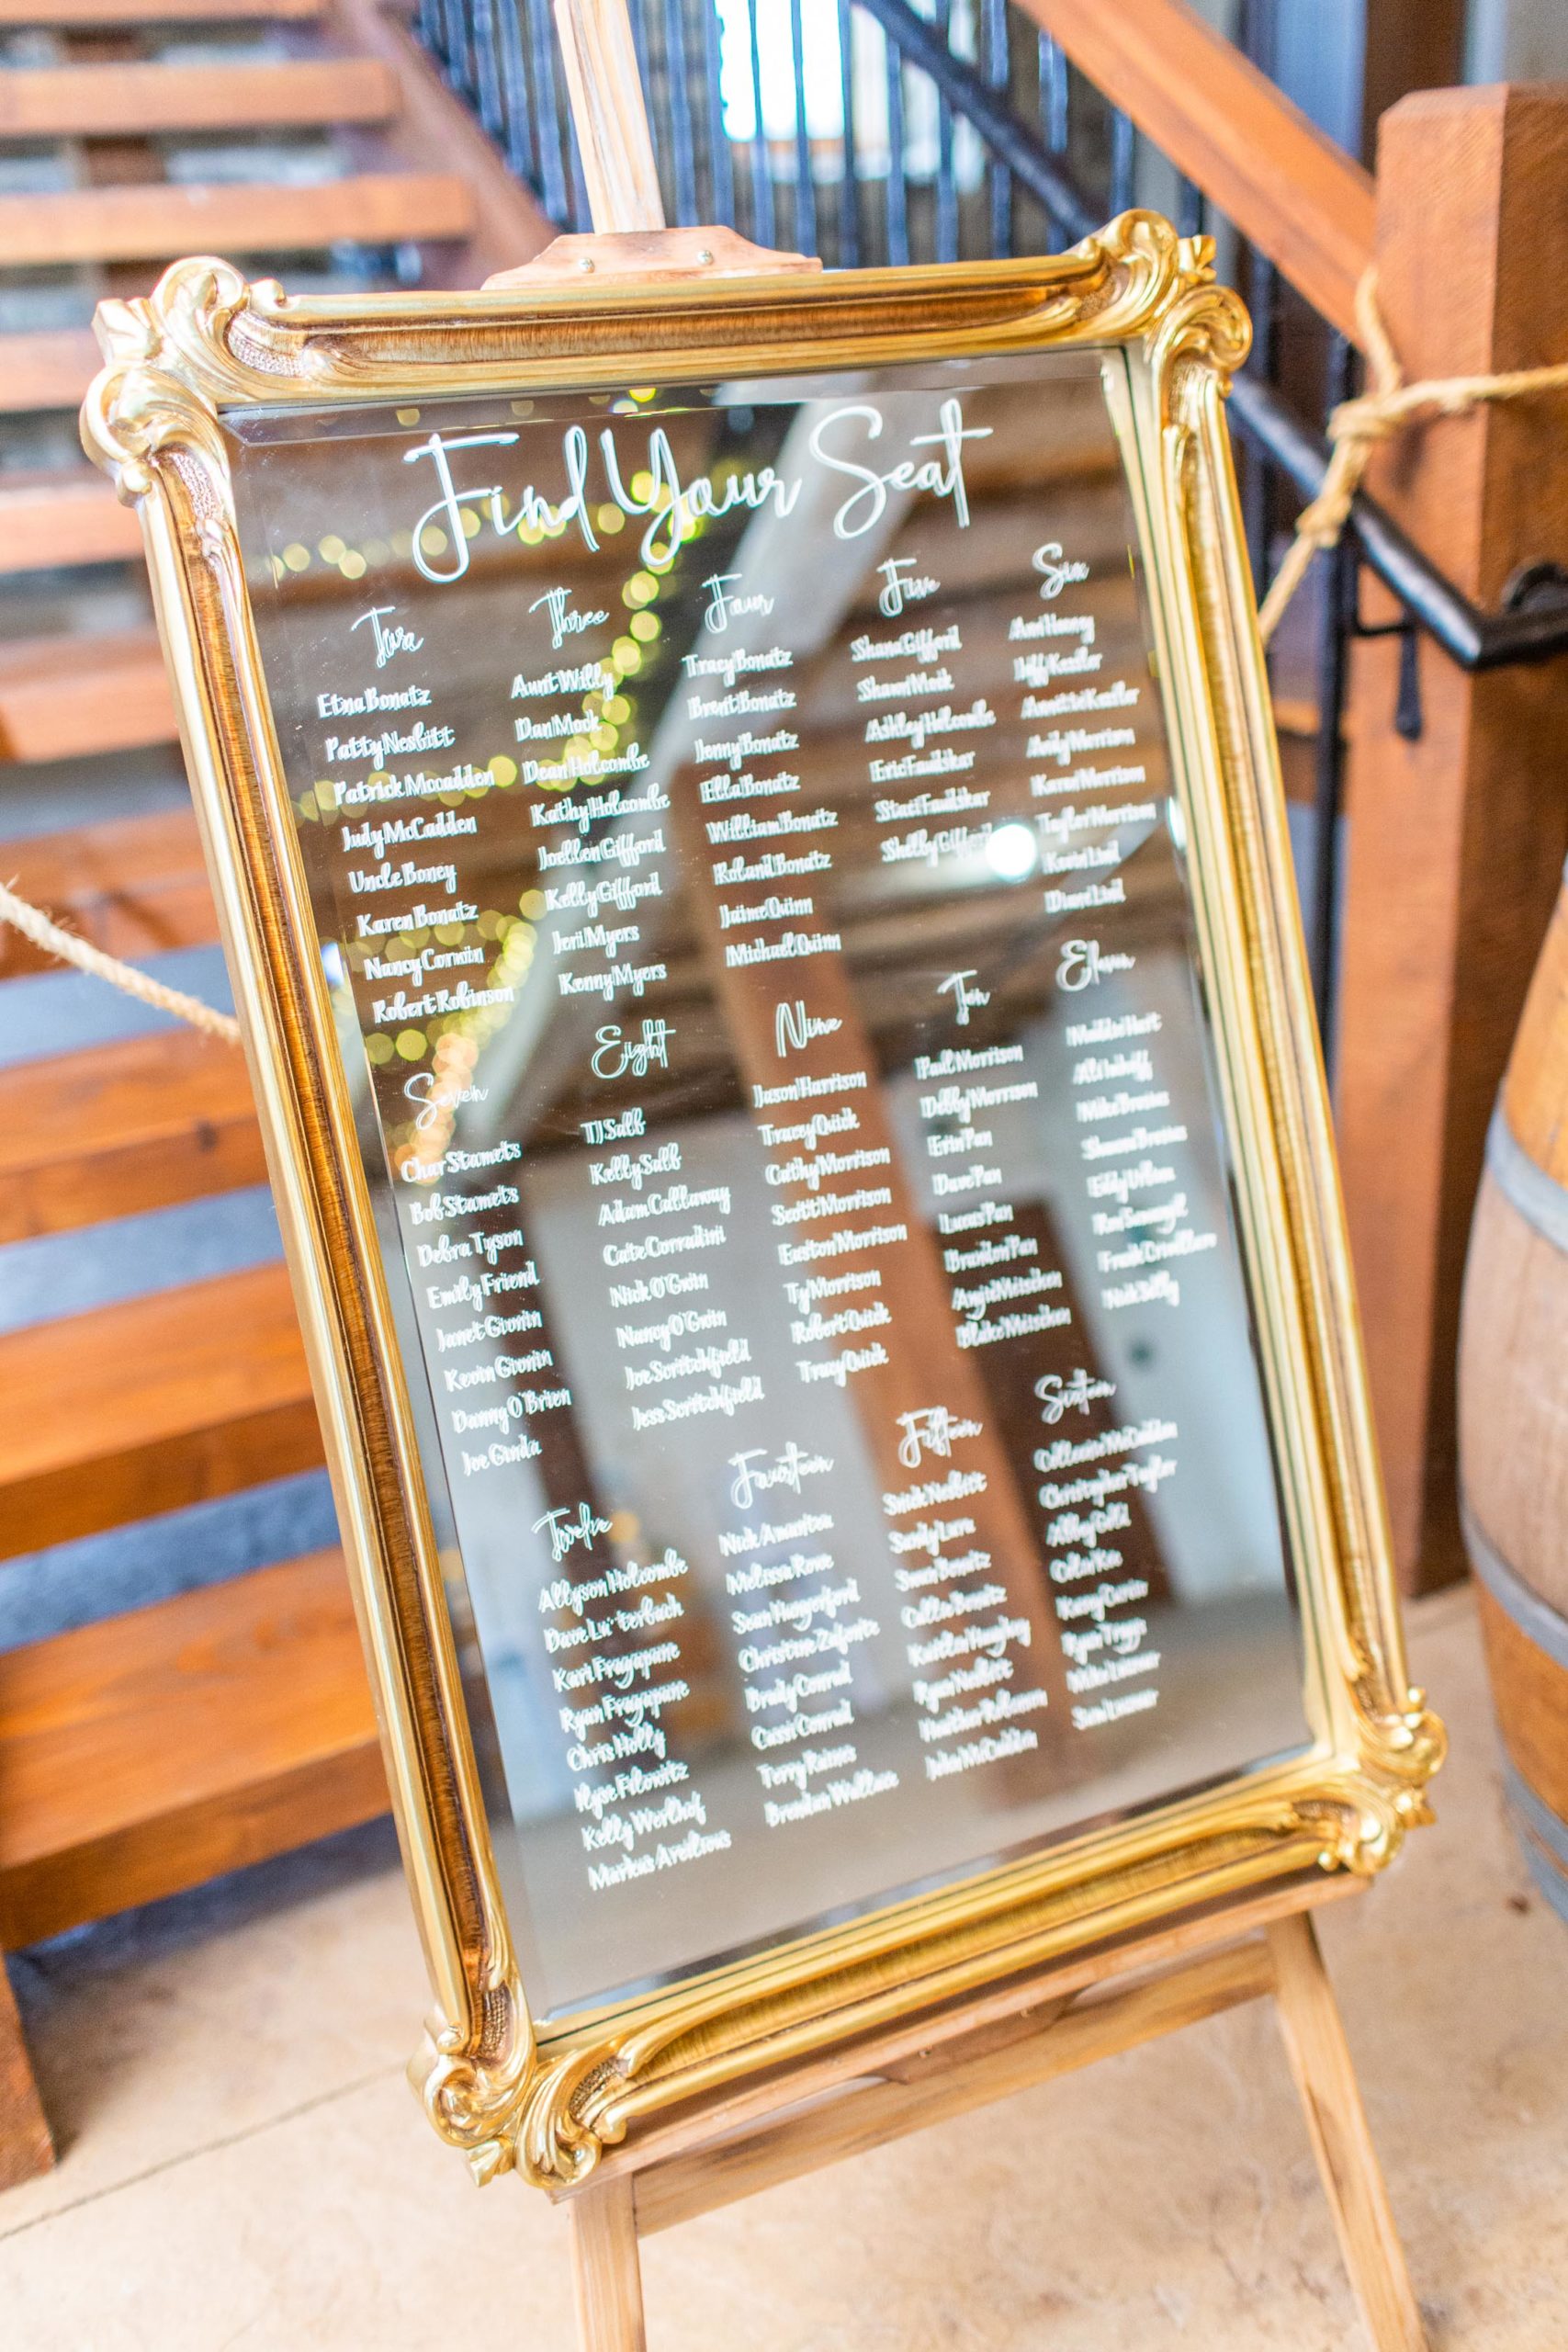 Find Your Seat
Two
Etna Bonatz
Patty Nesbitt
Patrick Mccadden
Judy McCadden
Uncle Boney
Karen Bonatz
Nancy Corwin
Robert Robinson
Three
Aunt Willy
Dan Mock
Dean Holcombe
Kathy Holcombe
Joellen Gifford
Kelly Gifford
Jeri Myers
Kenny Myers
Four
Tracy Bonatz
Brent Bonatz
Jenny Bonatz
Ella Bonatz
William Bonatz
Roland Bonatz
Jaime Quinn
Michael Quinn
Five
Shana Gifford
Shawn
Ashley Holcombe
Eric Faulskar
Staci Faulskar
Shelby Gifford
Six
Jeff Kessler
Annette Kessler
Andy Morrison
Karen Morrison
Taylor Morrison
Kevin Lind
Diane Lind
Seven
Char Stamets
Bob Stamets
Debra Tyson
Emily Friend
Janet Gionin
Kevin Gionin
Danny O'Brien
Joe Ginda
Eight
TJ Salb
Kelly Salb
Adam Callaway
Cate Corradini
Nick O'Gwin
Nancy O'Gwin
Joe Scritchfield
Jess Scritchfield
Nine
Jason Harrison
Tracey Quick
Cathy Morrison
Scott Morrison
Easton Morrison
Ty Morrison
Robert Quick
Tracy Quick
Ten
Paul Morrison
Debby Morrison
Erin Pan
Dave Pan
Lucas Pan
Brandon Pan
Angie Meischen
Blake Meischen
Eleven
Maddie Hart
Ali
Mike
Shawna
Eddy
Frank
Nick
Twelve
Allyson Holcombe
Dave
Kari Fragapane
Ryan Fragapane
Chris Holly
Ilyse Filowitz
Kelly Werthof
Markus
Fourteen
Nick
Melissa Rowe
Sean Hungerford
Christine Zafonte
Brady Conrad
Cassi Conrad
Terry Raines
Brendan Wallace
Fifteen
Nesbitt
Sandy
Sean Bonatz
Calla Bonatz
Kaitlin
Ryan Nesbitt
Heather Robinson
John McCadden
Sixteen
McCadden
Christopher Taylor
Abby
Colin
Ryan